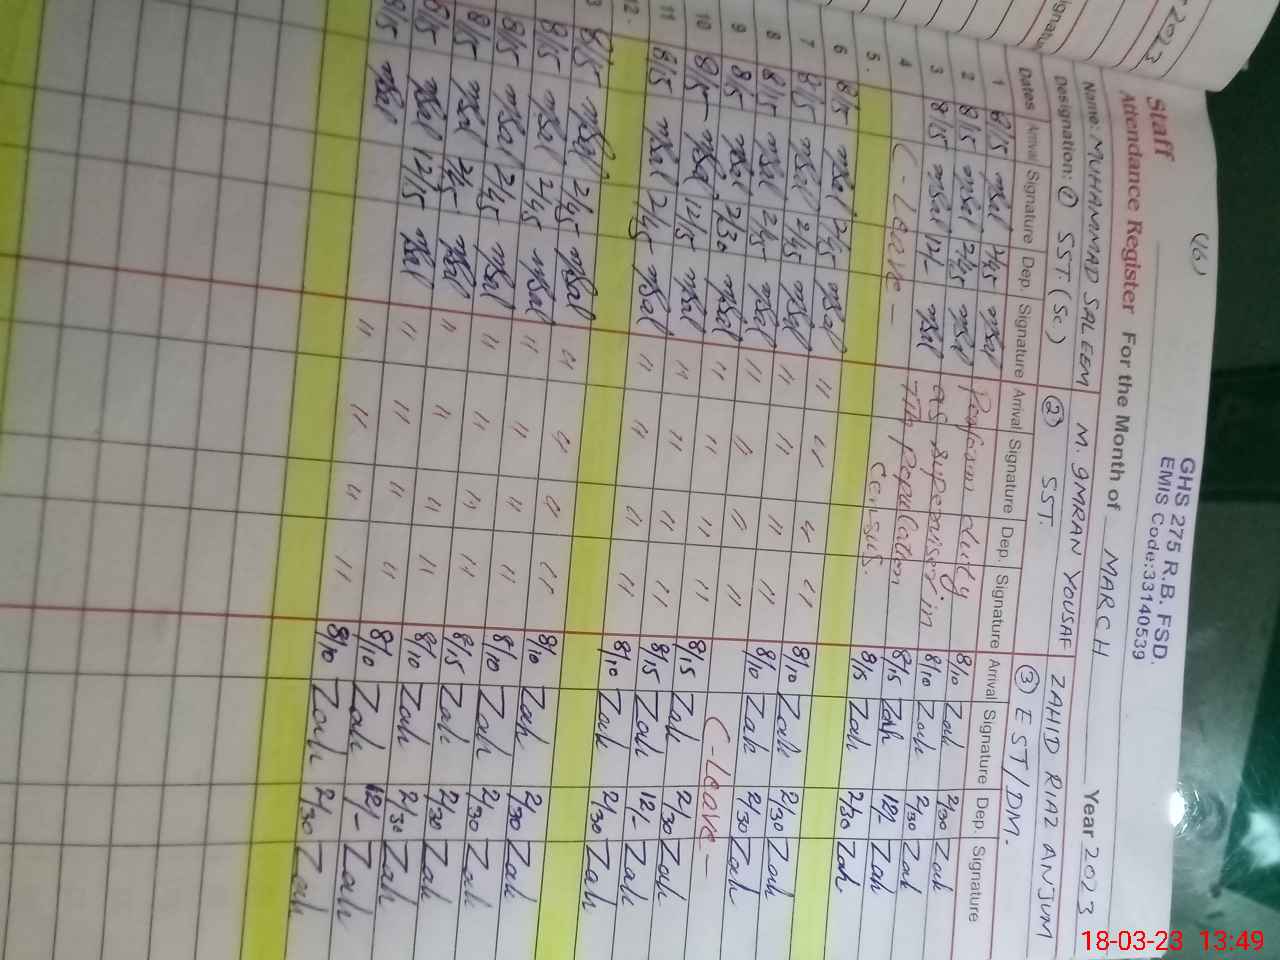 (16)
GHS 275 R.B. FSD.
EMIS Code:33140539
Staff
Attendance Register For the Month of MARCH Year 2023
Name: MUHAMMAD SALEEM M. IMRAN YOUSAF ZAHID RIAZ ANJUM
Designation: ① SST (Sc) ② SST. ③ EST/DM.
Dates Arrival Signature Dep. Signature Arrival Signature Dep. Signature Arrival Signature Dep. Signature
1 8/15 mSal 2/45 mSal Perform duty 8/10 Zah 2/30 Zah
2 8/15 mSal 2/45 mSal as supervisor in 8/10 Zah 2/30 Zah
3 8/15 mSal 12/- mSal 7th population 8/15 Zah 12/- Zah
4 (-Leave- Census. 8/15 Zah 2/30 Zah
5.
6 8/15 mSal 2/45 mSal " " " " 8/10 Zah 2/30 Zah
7 8/15 mSal 2/45 mSal " " " " 8/10 Zah 2/30 Zah
8 8/15 mSal 2/45 mSal " " " " (-Leave-
9 8/15 mSal 2/30 mSal " " " " 8/15 Zah 2/30 Zah
10 8/15 mSal 12/15 mSal " " " " 8/15 Zah 12/- Zah
11 8/15 mSal 2/45 mSal " " " " 8/10 Zah 2/30 Zah
12.
3 8/15 mSal 2/45 mSal " " " " 8/10 Zah 2/30 Zah
8/15 mSal 2/45 mSal " " " " 8/10 Zah 2/30 Zah
8/15 mSal 2/45 mSal " " " " 8/15 Zah 2/30 Zah
8/15 mSal 2/45 mSal " " " " 8/10 Zah 2/30 Zah
8/15 mSal 12/15 mSal " " " " 8/10 Zah 12/- Zah
8/15 mSal " " " " 8/10 Zah 2/30 Zah
2023
18-03-23 13:49